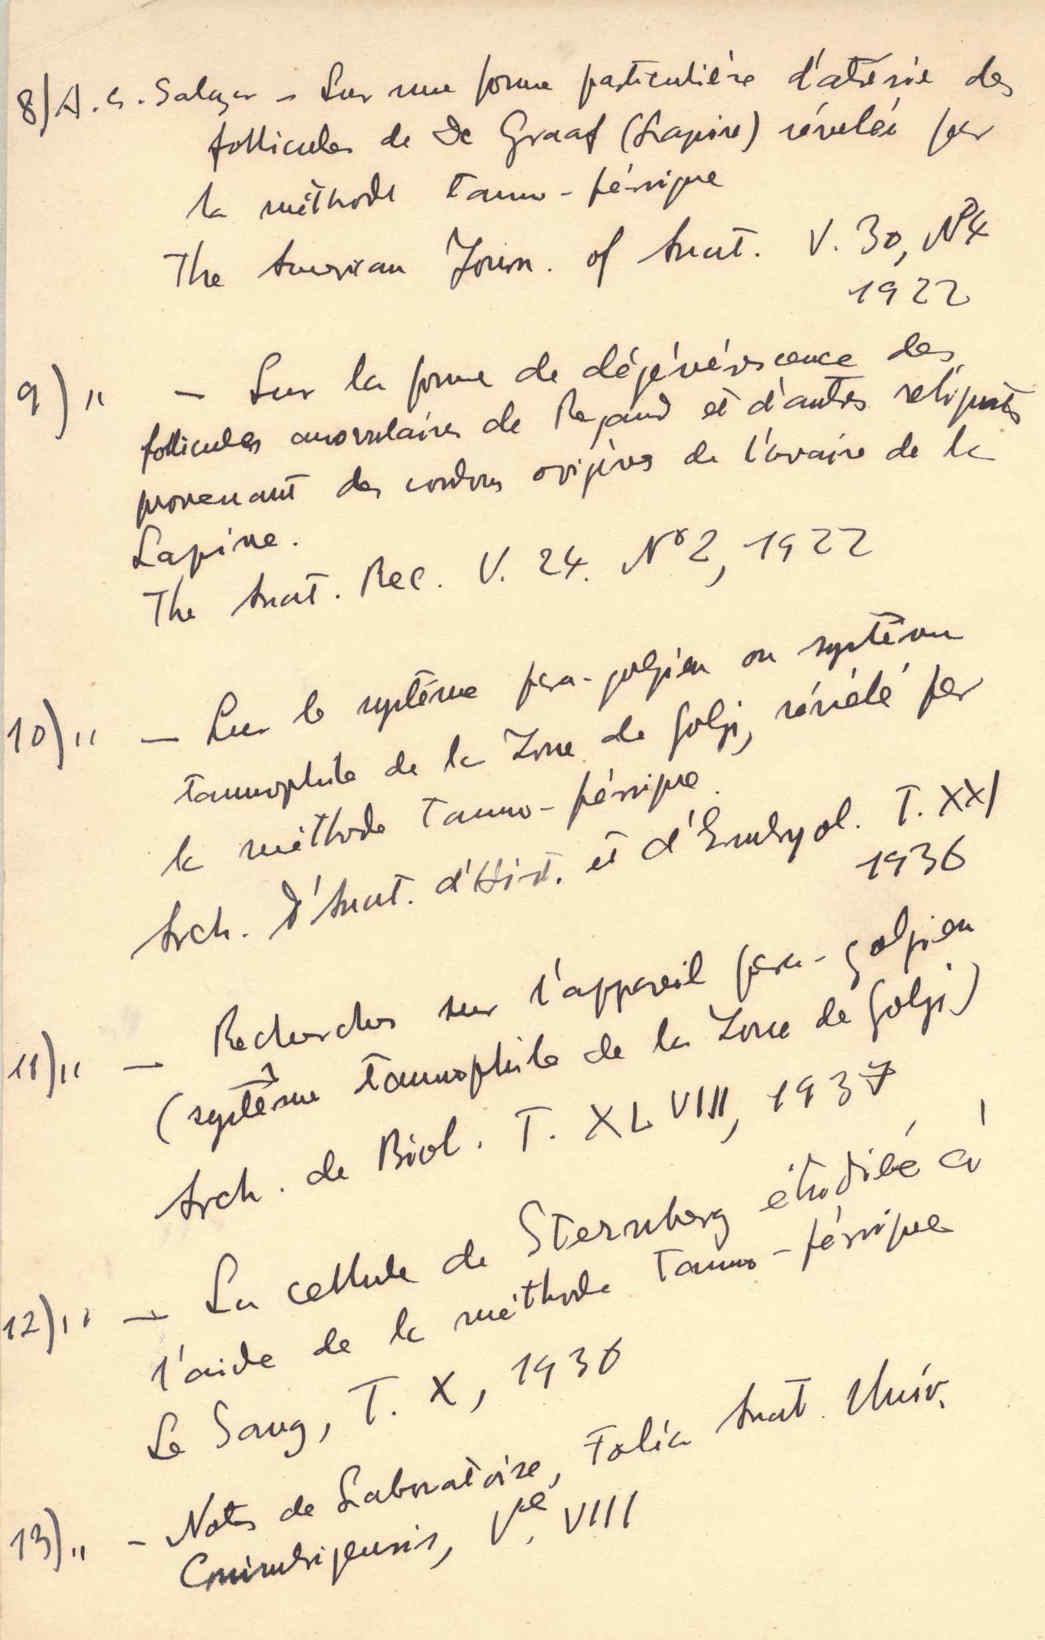 8) A. C. Salazar - Sur une forme particulière d'atrésie des
follicules de De Graaf (Lapine) révelée par
la méthode tanno-férrique
The American Journ. of Anat. V. 30, Nº4
1922
9) " - Sur la forme de dégénérescence des
follicules anovulaires de Regaud et d'autres reliquats
provenant des cordons ovigènes de l'ovaire de la
Lapine.
The Anat. Rec. V. 24. Nº 2, 1922
10) " - Sur le système para-golgien ou système
tannophile de la Zone de Golgi, révélé par
la méthode tanno-férrique.
Arch. d'Anat. d'Hist. et d'Embryol. T. XXI
1936
11) " - Recherches sur l'appareil para-golgien
(système tannophile de la Zone de Golgi)
Arch. de Biol. T. XLVIII, 1937
12) " - La cellule de Sternberg étudiée à
l'aide de la méthode tanno-férrique
Le Sang, T. X, 1936
13) " - Notes de Laboratoire, Folia Anat. Univ.
Conimbrigensis, Vol. VIII